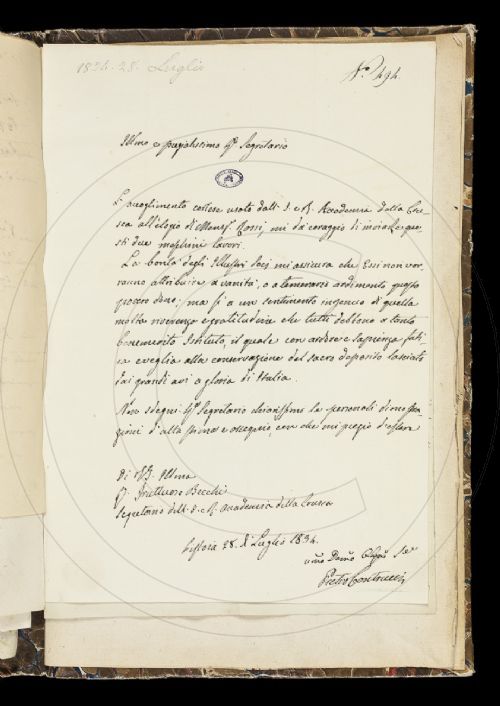 1834. 28. Luglio
N.º 494.
Illmo e pregiatissimo Sig. Segretario
L'accoglimento cortese usato dall' I. e R. Accademia della Cru
sca all'elogio di Monsig. Rossi, mi dà coraggio di inviarle que
sti due meschini lavori.
La bontà degli Illustri Soci mi assicura che Essi non vor
ranno attribuire a vanità, o a temerario ardimento questo
povero dono; ma sì a un sentimento ingenuo di quella
molta riverenza e gratitudine che tutti debbono a tanto
benemerito Istituto, il quale con ardore e sapienza fati
ca e veglia alla conservazione del sacro deposito lasciato
dai grandi avi a gloria di Italia.
Non isdegni Sig. Segretario chiarissimo le personali dimostra
zioni d'alta stima e ossequio, con che mi pregio d'essere
Di V.S. Illma
S. Fruttuoso Becchi
Segretario dell' I. e R. Accademia della Crusca
Pistoia 28. di Luglio 1834.
Pietro Contrucci